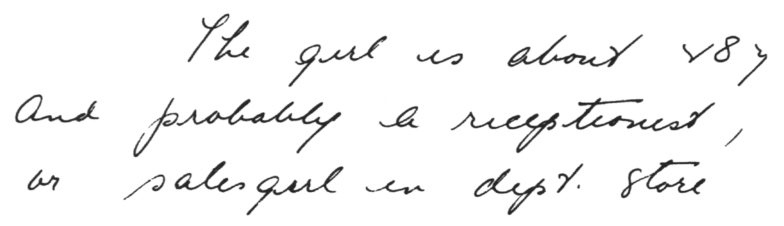 The girl is about 28 y
and probably a receptionist,
or salesgirl in dept. store